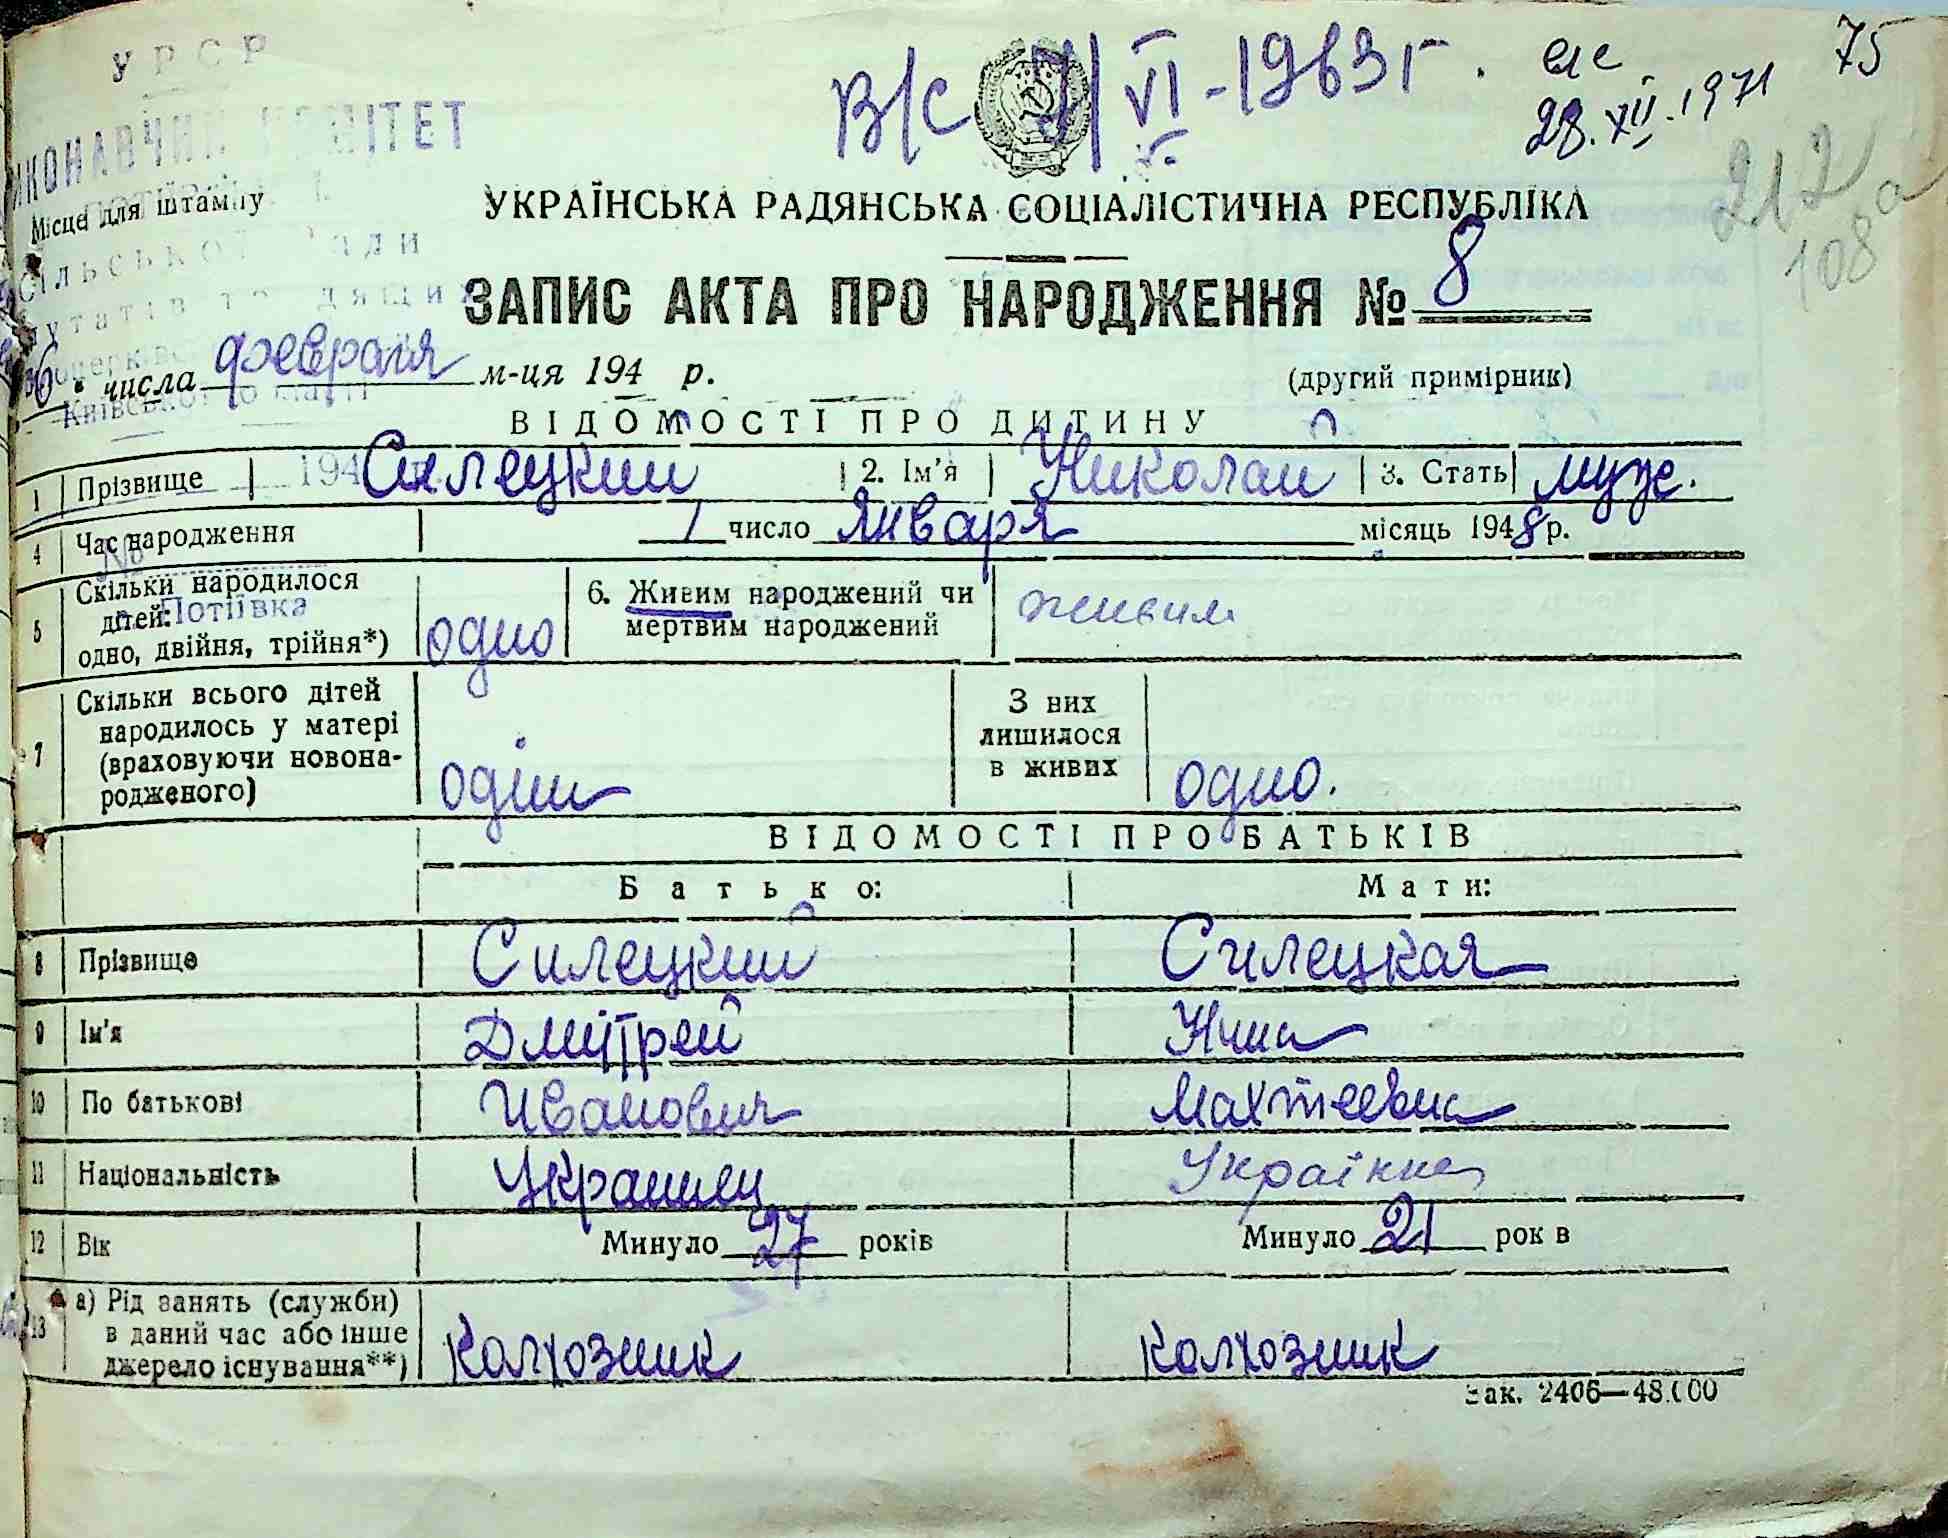 УРСР
ВИКОНАВЧИЙ КОМІТЕТ
Місце для штампу
сільської Ради
депутатів трудящих
Київської області
194
№
с. Потіївка
В/С VI-1963г.
28.XII.1971
75
212
108а
УКРАЇНСЬКА РАДЯНСЬКА СОЦІАЛІСТИЧНА РЕСПУБЛІКА
ЗАПИС АКТА ПРО НАРОДЖЕННЯ № 8
числа февраля м-ця 194 р. (другий примірник)
ВІДОМОСТІ ПРО ДИТИНУ
1 Прізвище Силецкий 2. Ім'я Николай 3. Стать муж.
4 Час народження 1 число января місяць 1948 р.
5 Скільки народилося дітей: одно, двійня, трійня*) одно 6. Живим народжений чи мертвим народжений живим
7 Скільки всього дітей народилось у матері (враховуючи новонародженого) одін З них лишилося в живих одно.
ВІДОМОСТІ ПРО БАТЬКІВ
Батько: Мати:
8 Прізвище Силецкий Силецкая
9 Ім'я Дмитрей Нина
10 По батькові Иванович Махтеевна
11 Національність Украинец Українка
12 Вік Минуло 27 років Минуло 21 рок в
13 а) Рід занять (служби) в даний час або інше джерело існування**) колхозник колхозник
Зак. 2406—48.000